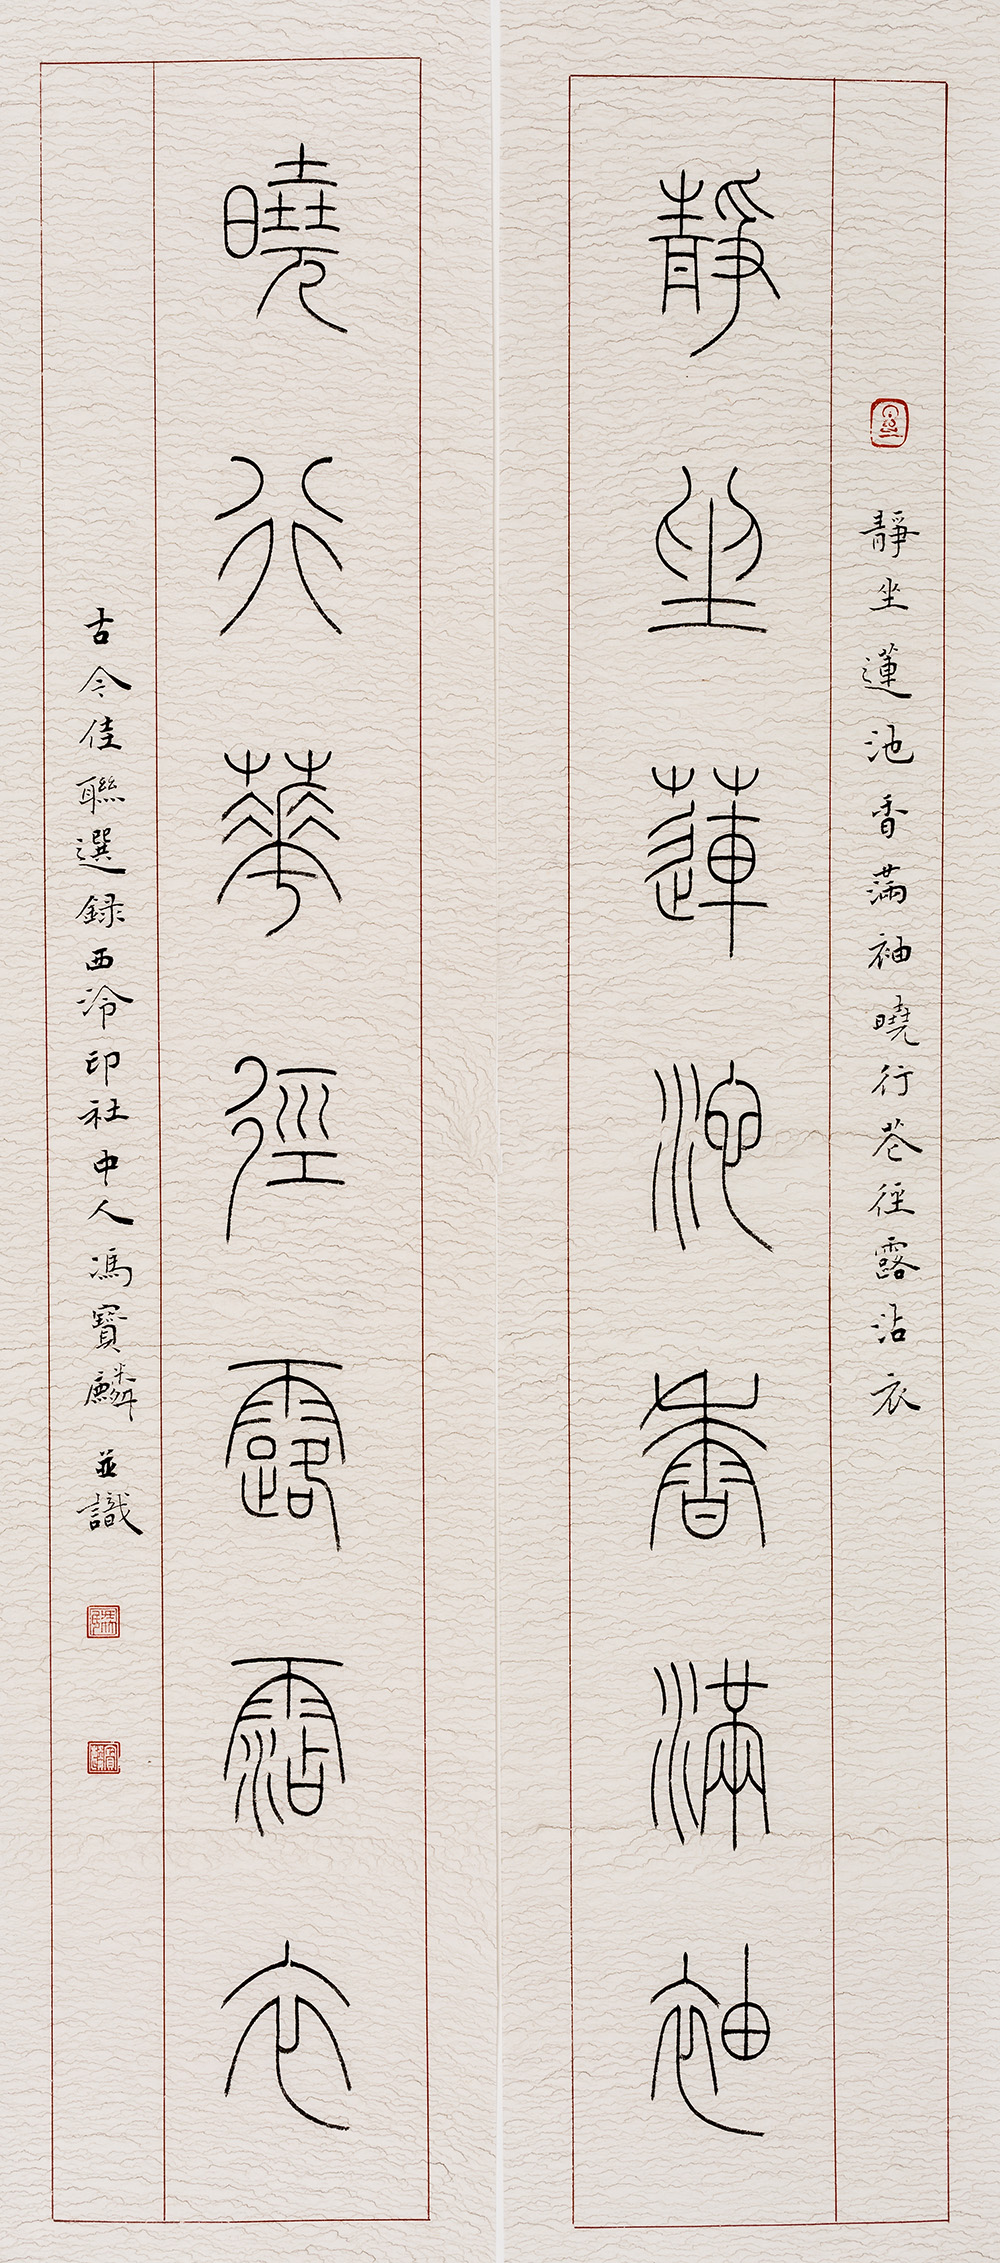 靜坐蓮池香滿袖曉行花徑露沾衣
靜坐蓮池香滿袖
曉行華徑露霑衣
古今佳聯選録西泠印社中人馮寶麟並識